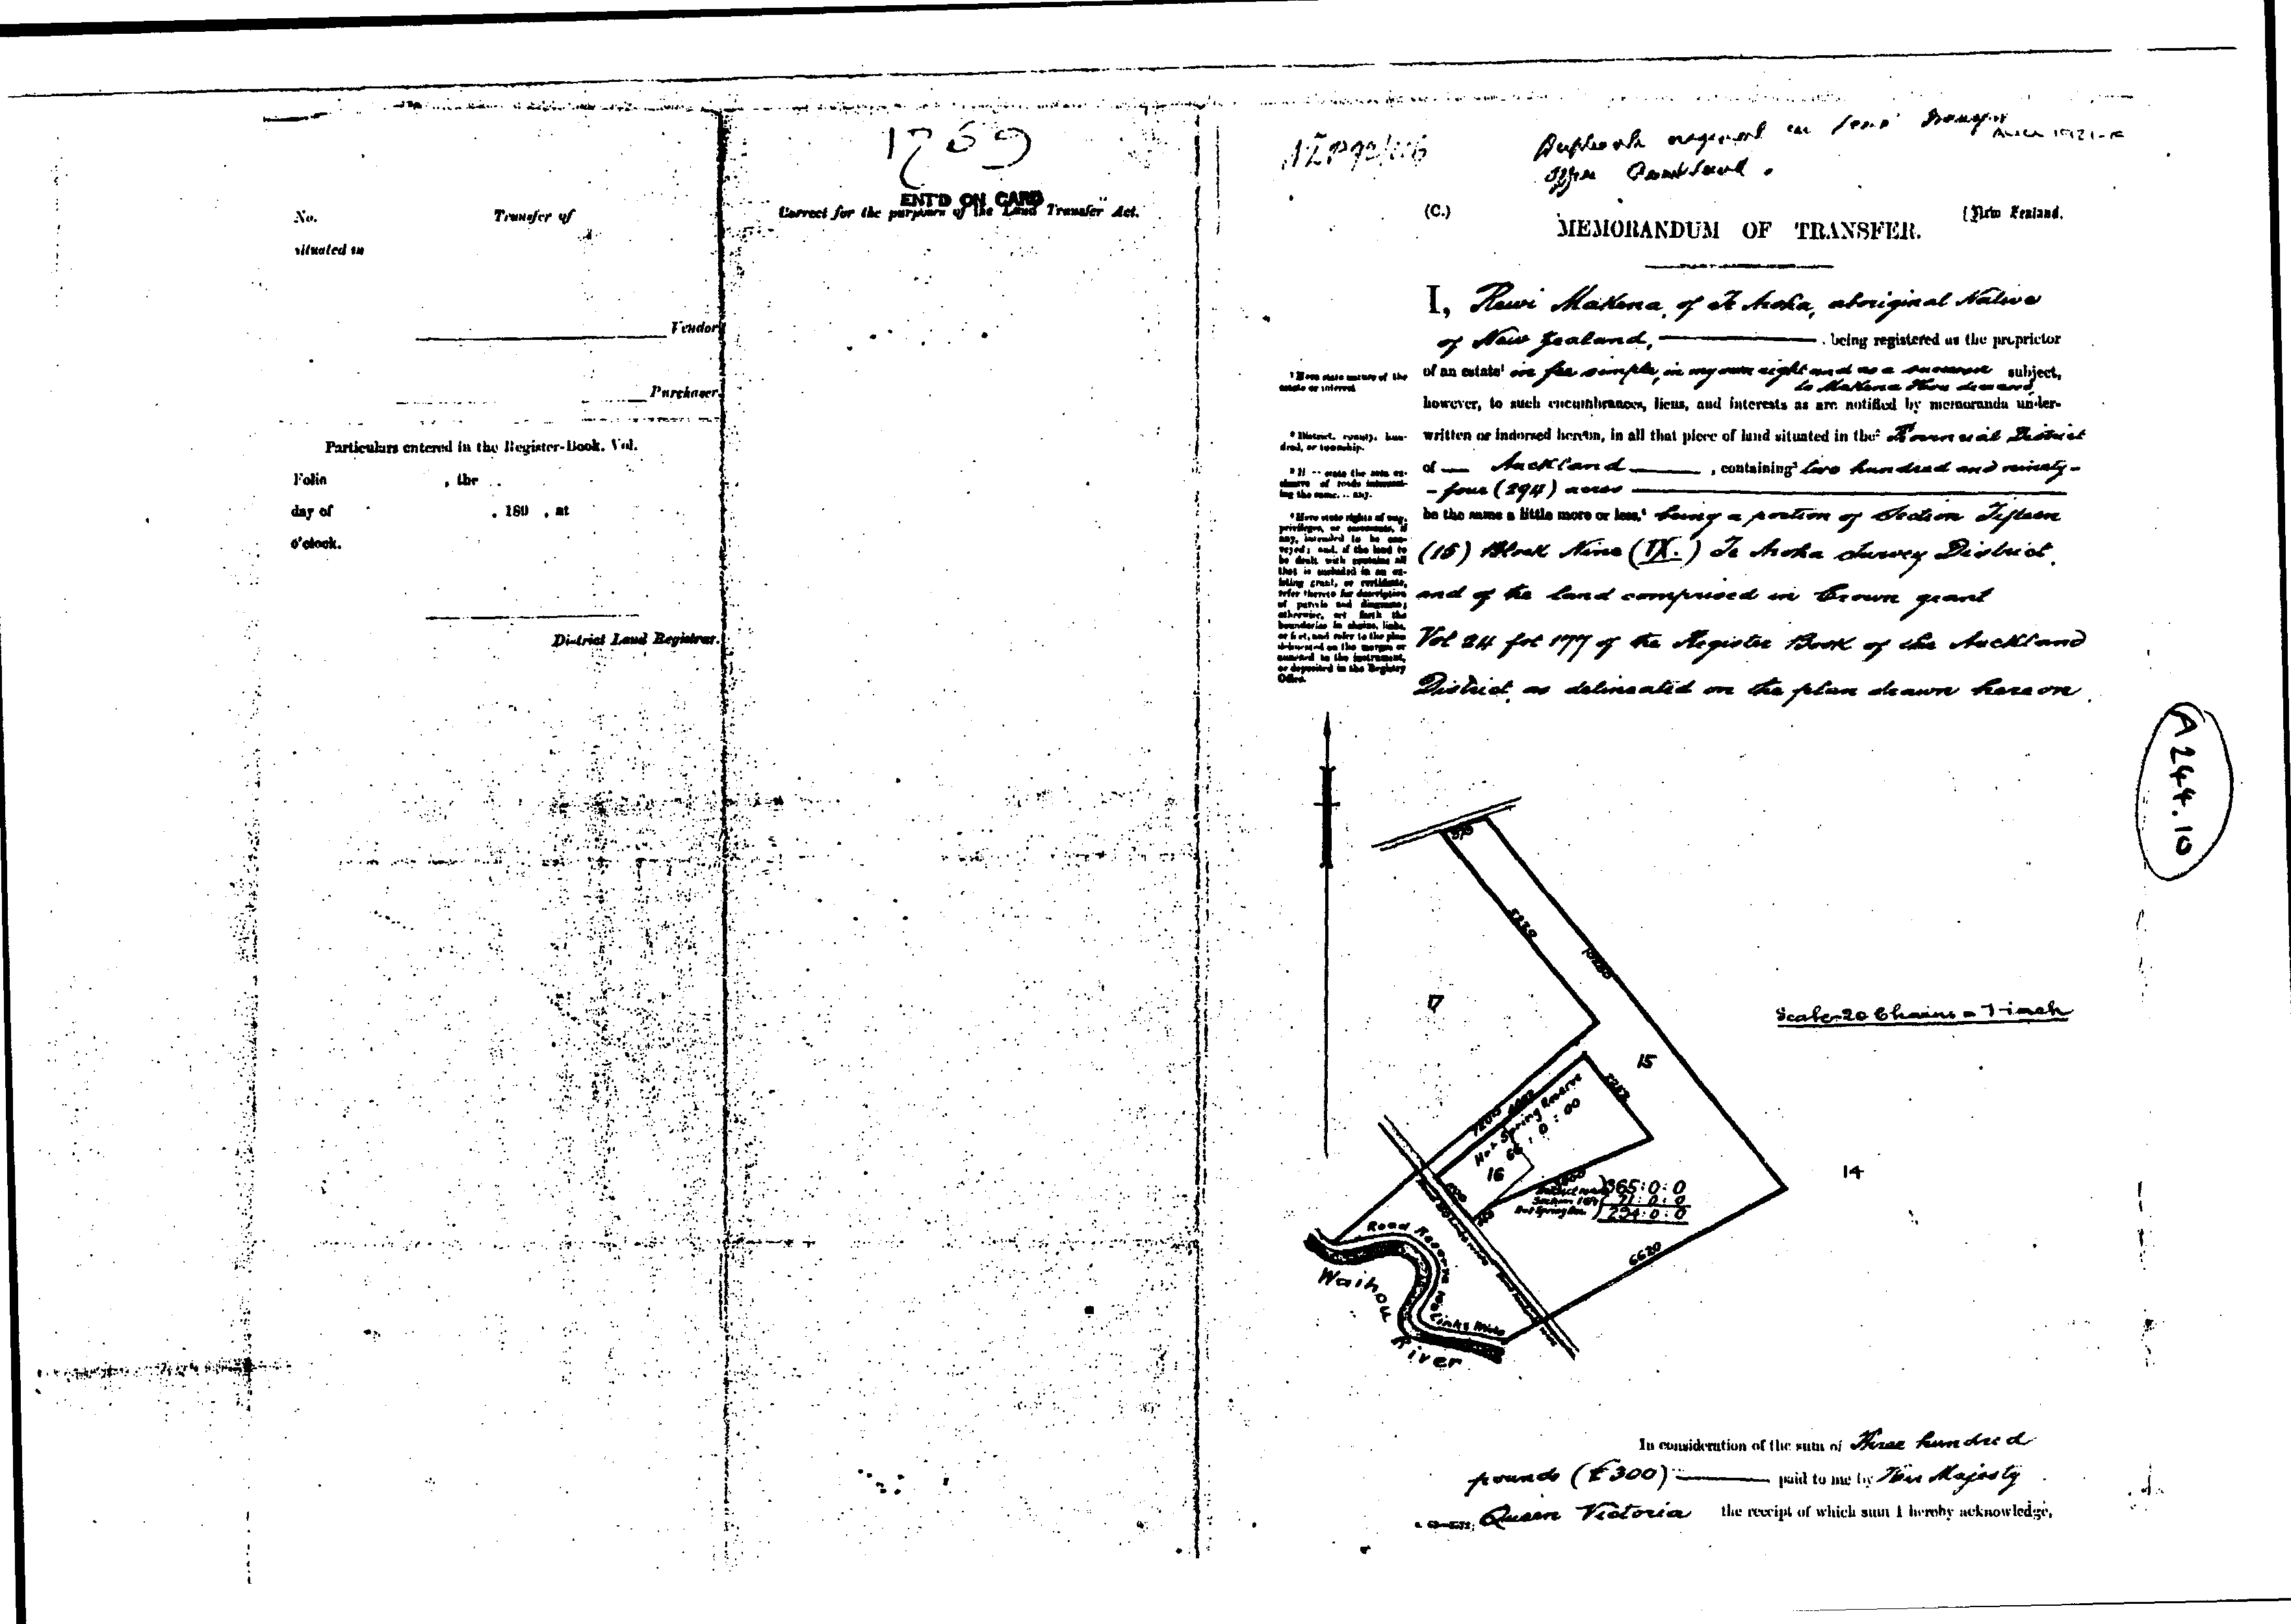 1769
ENT'D ON CARD
No. Transfer of
Correct for the purposes of the Land Transfer Act.
situated in
Vendor
Purchaser.
Particulars entered in the Register-Book, Vol.
Folio , the
day of , 189 , at
o'clock.
District Land Registrar.
Duplicate in Land Transfer
Office Auckland.
(C.) [New Zealand.
MEMORANDUM OF TRANSFER.
I, Rewi Makena, of Te Aroha, aboriginal Native
of New Zealand, , being registered as the proprietor
of an estate¹ in fee simple, in my own right and as a successor subject,
to Makena Hou deceased,
however, to such encumbrances, liens, and interests as are notified by memoranda under-
written or indorsed hereon, in all that piece of land situated in the² Provincial District
of Auckland , containing³ two hundred and ninety-
-four (294) acres
be the same a little more or less,⁴ being a portion of Section Fifteen
(15) Block Nine (IX.) Te Aroha Survey District,
and of the land comprised in Crown grant
Vol 24 fol 177 of the Register Book of the Auckland
District, as delineated on the plan drawn hereon.
¹ Here state nature of the
estate or interest.
² District, county, hun-
dred, or township.
³ state the area ex-
clusive of roads intersect-
ing the same, any.
⁴ Here state rights of way,
privileges, or easements, if
any, intended to be con-
veyed; and, if the land to
be dealt with contains all
that is included in an ex-
isting grant, or certificate,
refer thereto for description
of parcels and diagrams;
otherwise, set forth the
boundaries in chains, links,
or feet, and refer to the plan
delineated on the margin or
annexed to the instrument,
or deposited in the Registry
Office.
A244.10
17
15
Scale 20 Chains = 1 inch
Hot Spring Reserve
66:0:00
16
14
365:0:0
71:0:0
294:0:0
6620
Road Reserve Links Wide
Waihou River
In consideration of the sum of Three hundred
pounds (£300) paid to me by Her Majesty
Queen Victoria the receipt of which sum I hereby acknowledge,